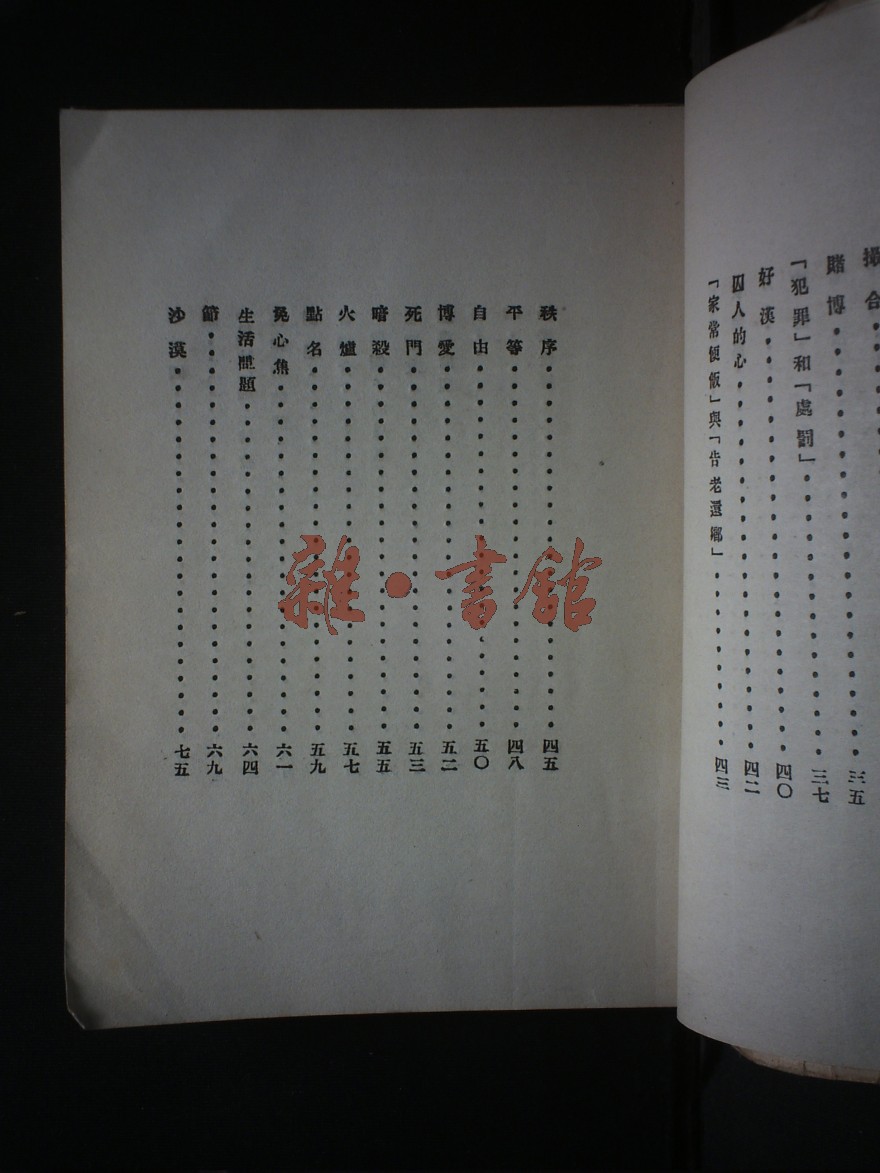 賭博・・・・・・・・・・・・・・・・・三五
「犯罪」和「處罰」・・・・・・・・・・・三七
好漢・・・・・・・・・・・・・・・・・四〇
囚人的心・・・・・・・・・・・・・・・・四二
「家常便飯」與「告老還鄉」・・・・・・・・四三
秩序・・・・・・・・・・・・・・・・・四五
平等・・・・・・・・・・・・・・・・・四八
自由・・・・・・・・・・・・・・・・・五〇
博愛・・・・・・・・・・・・・・・・・五二
死門・・・・・・・・・・・・・・・・・五三
暗殺・・・・・・・・・・・・・・・・・五五
火爐・・・・・・・・・・・・・・・・・五七
點名・・・・・・・・・・・・・・・・・五九
心焦・・・・・・・・・・・・・・・・・六一
生活問題・・・・・・・・・・・・・・・・六四
節・・・・・・・・・・・・・・・・・・六九
沙漠・・・・・・・・・・・・・・・・・七五
雜・書館